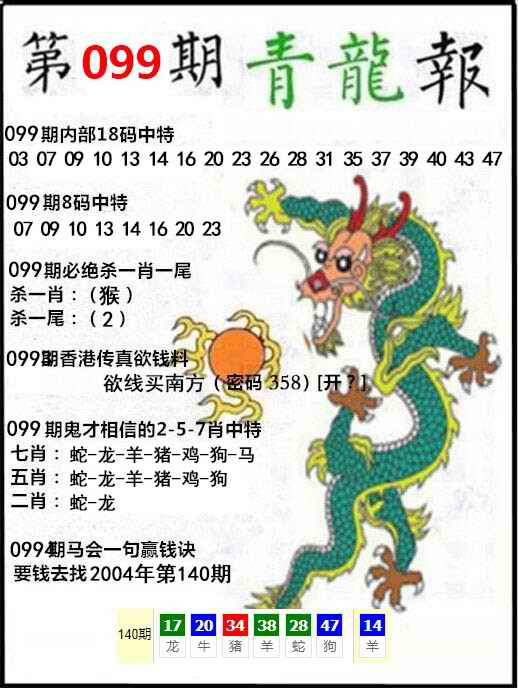 第099期青龍報
099期内部18码中特
03 07 09 10 13 14 16 20 23 26 28 31 35 37 39 40 43 47
099期8码中特
07 09 10 13 14 16 20 23
099期必绝杀一肖一尾
杀一肖：（猴）
杀一尾：（2）
099期香港传真欲钱料
欲线买南方（密码 358）[开？]
099期鬼才相信的2-5-7肖中特
七肖：蛇-龙-羊-猪-鸡-狗-马
五肖：蛇-龙-羊-猪-鸡-狗
二肖：蛇-龙
099期马会一句赢钱诀
要钱去找2004年第140期
140期 17 20 34 38 28 47 14
龙 牛 猪 羊 蛇 狗 羊